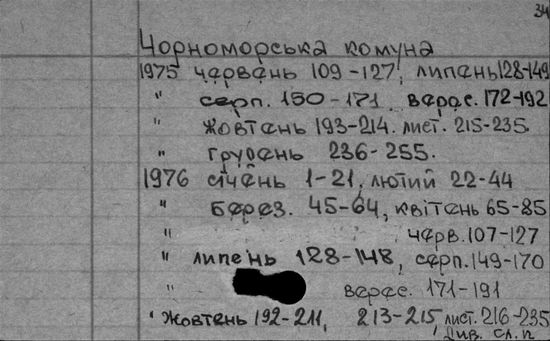 34
Чорноморська комуна
1975 червень 109-127, липень 128-149
" серп. 150-171 верес. 172-192
" жовтень 193-214. лист. 215-235.
" грудень 236-255.
1976 січень 1-21, лютий 22-44
" берез. 45-64, квітень 65-85
" черв. 107-127
" липень 128-148, серп. 149-170
" верес. 171-191
" жовтень 192-211, 213-215, лист. 216-235
Див. сл. п